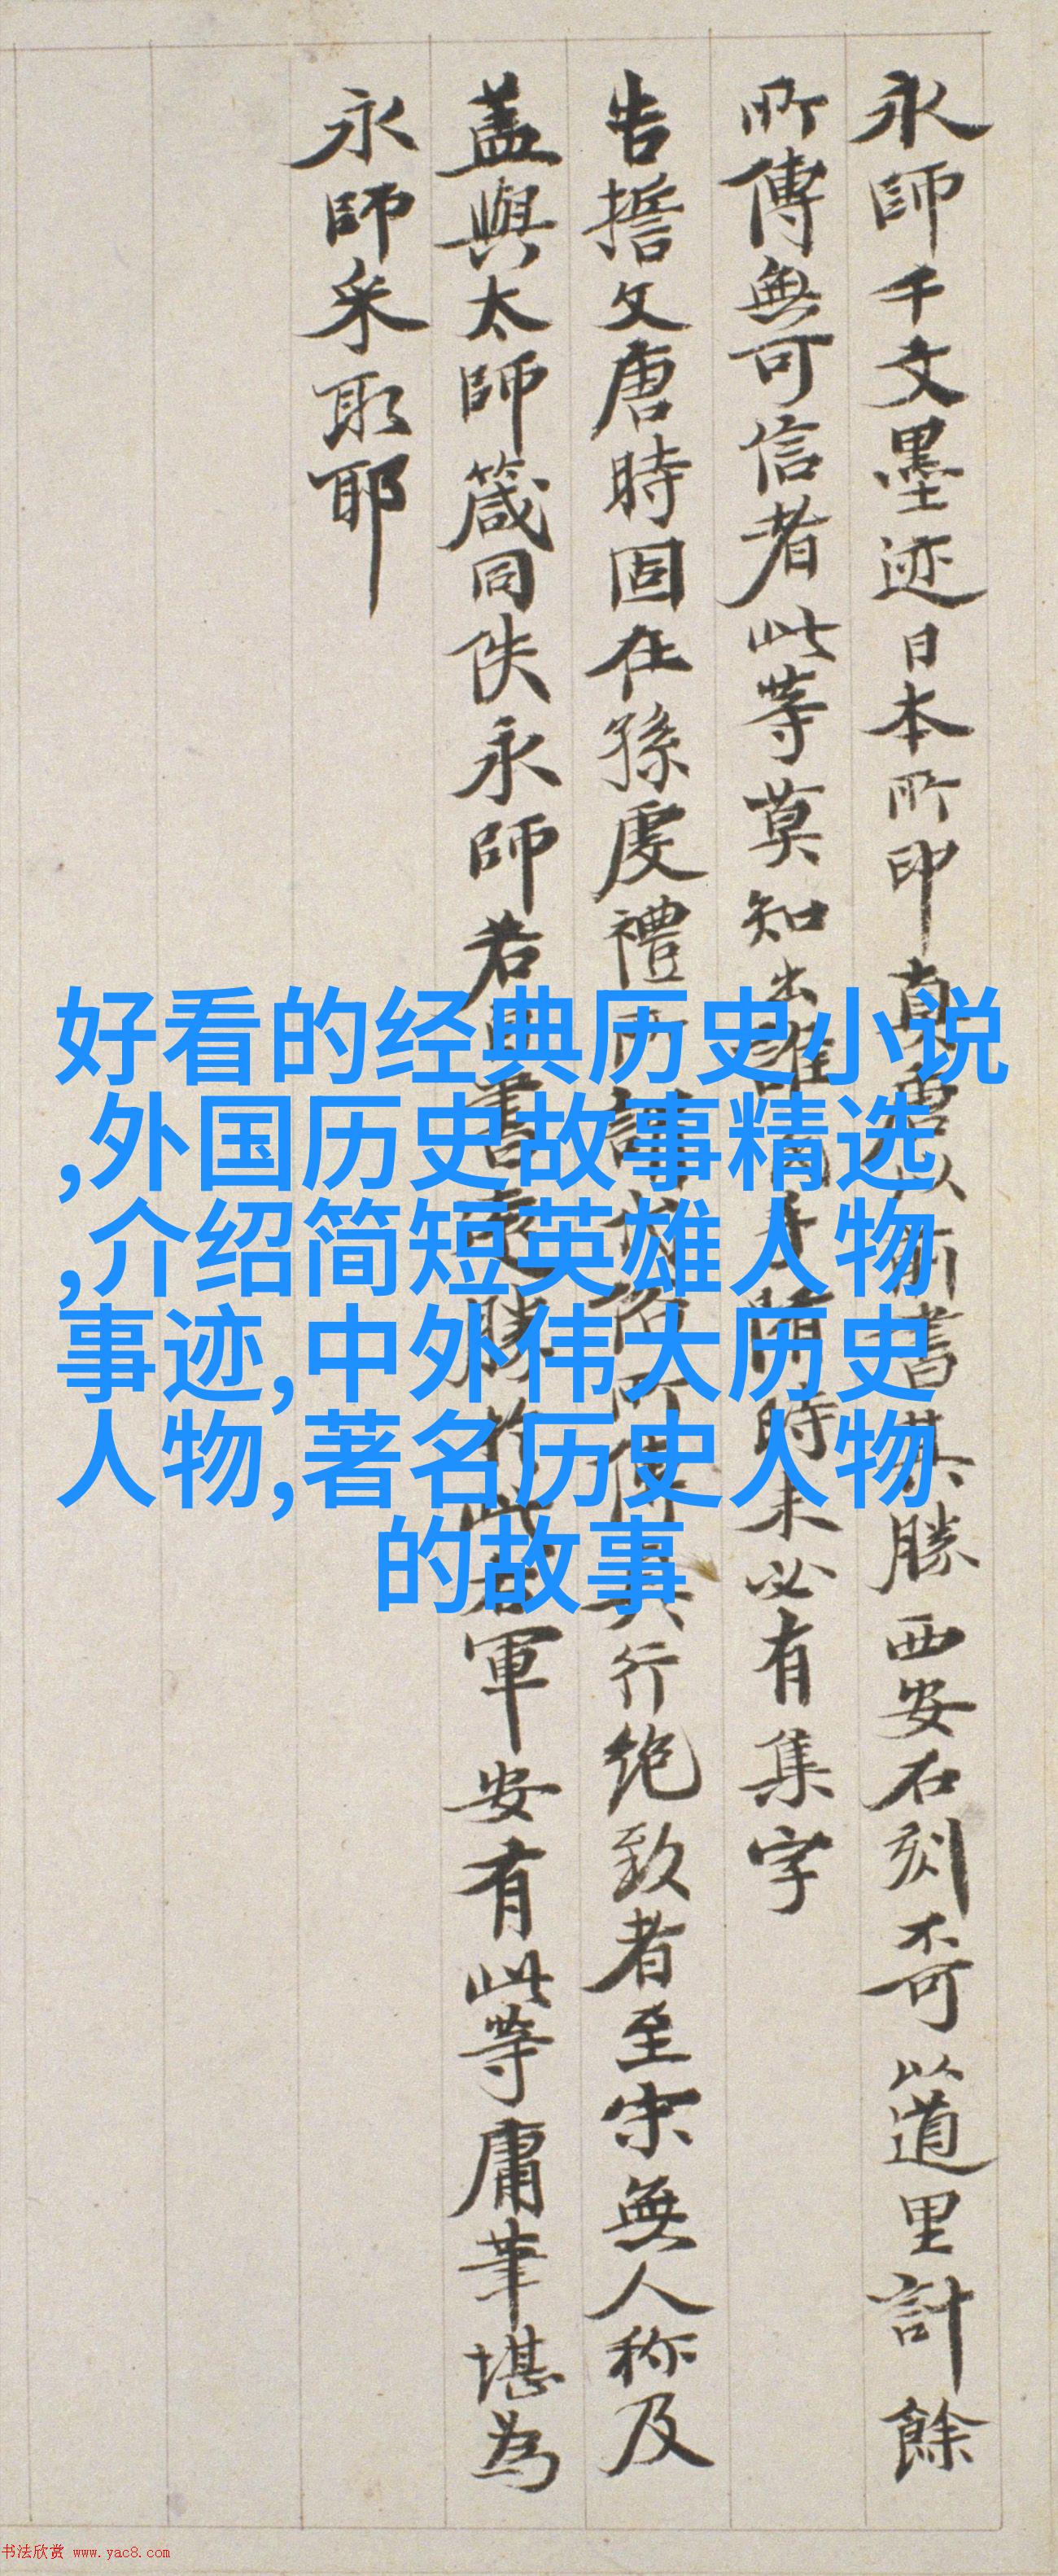 永師千文墨迹日本所印真
勝西安石刻奇以道里計餘
所傳無可信者此等莫知出
時未必有集字
告擔文唐時固在孫虔禮
行絶致者至宋無人称及
盖與太師箴同佚永師若
軍安有此等庸筆堪為
永師采取耶
好看的经典历史小说
,外国历史故事精选
,介绍简短英雄人物
事迹,中外伟大历史
人物,著名历史人物
的故事
书法欣赏 www.yac8.com